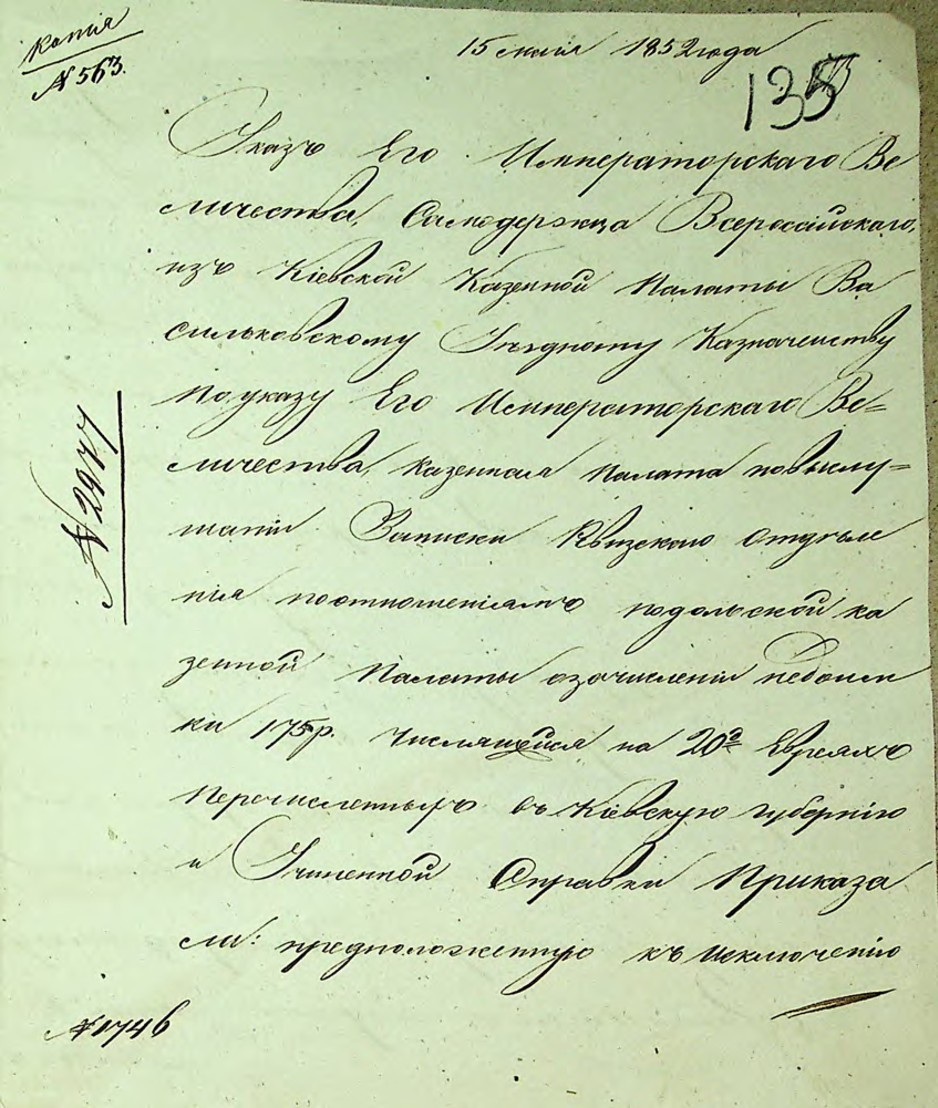 Копія
№ 563.
15 мая 1852 года
135
Указъ Его Императорскаго Ве
личества, Самодержца Всероссійскаго,
изъ Кіевской Казенной Палаты Ва
сильковскому Уѣздному Казначейству
По указу Его Императорскаго Ве=
личества, Казенная Палата по выслу=
шаніи Записки Ревизскаго Отдѣле
нія по отношеніямъ Подольской ка
зенной Палаты о зачисленіи недоим
ки 175 р. числящейся на 20 Евреяхъ
перечисленныхъ въ Кіевскую губернію
и Учиненной Справки Приказа
ли: предположенную къ исключенію
№ 2977
№ 1746